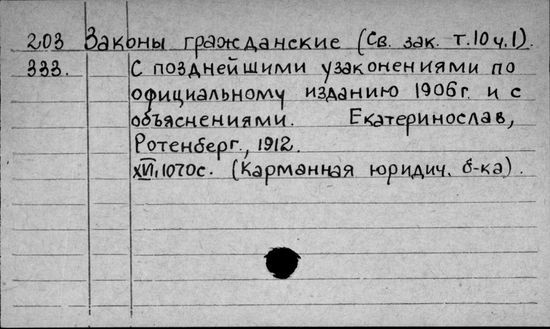 203 Законы гражданские (Св. зак. т.10 ч.1).
333. С позднейшими узаконениями по
официальному изданию 1906г. и с
объяснениями. Екатеринослав,
Ротенберг., 1912.
XVI, 1070с. (Карманная юридич. б-ка).